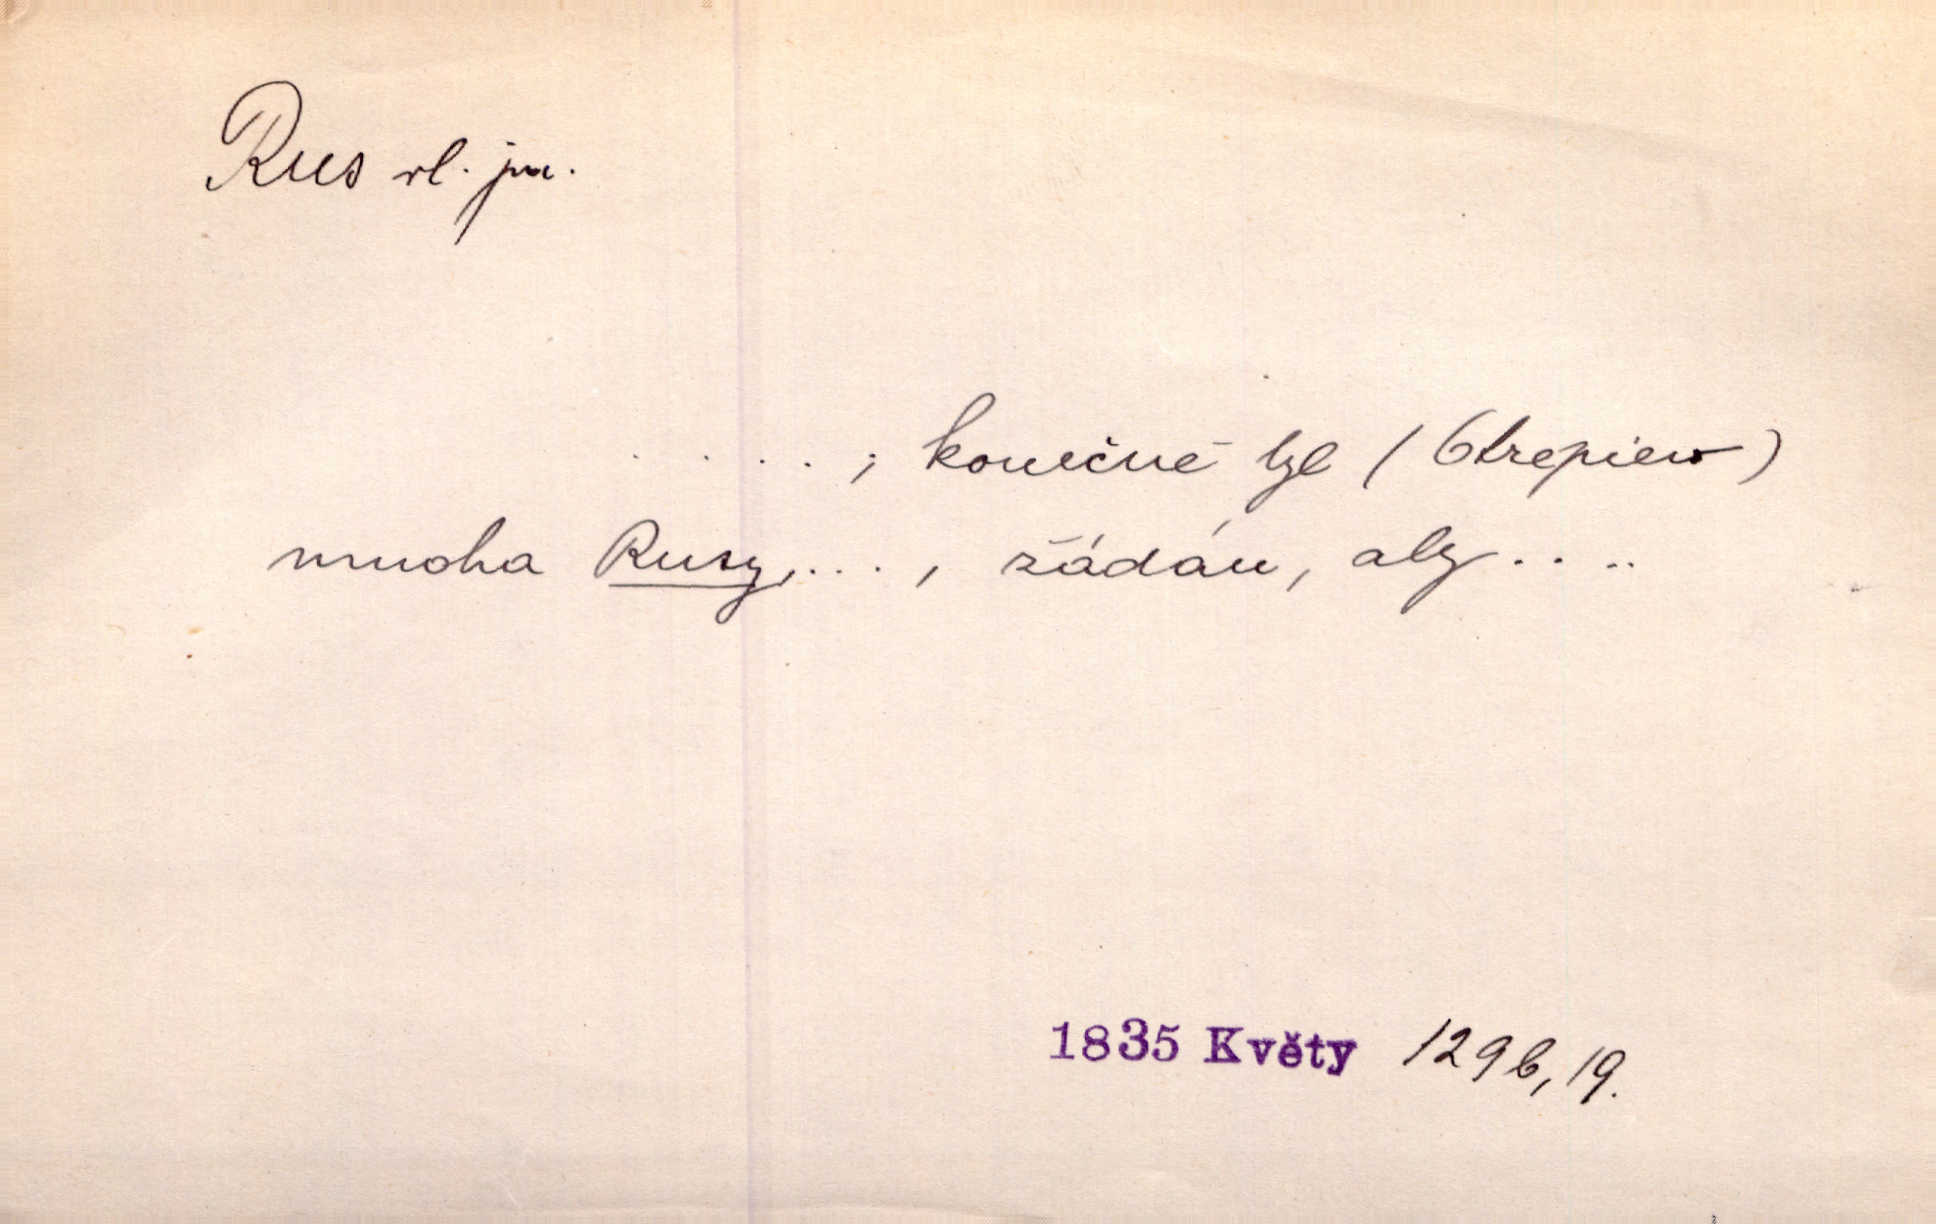 Rus vl. jm.
. . . . ; konečně byl (Otrepiew)
mnoha Rusy, . . . , žádán, aby . . . .
1835 Květy 129b, 19.